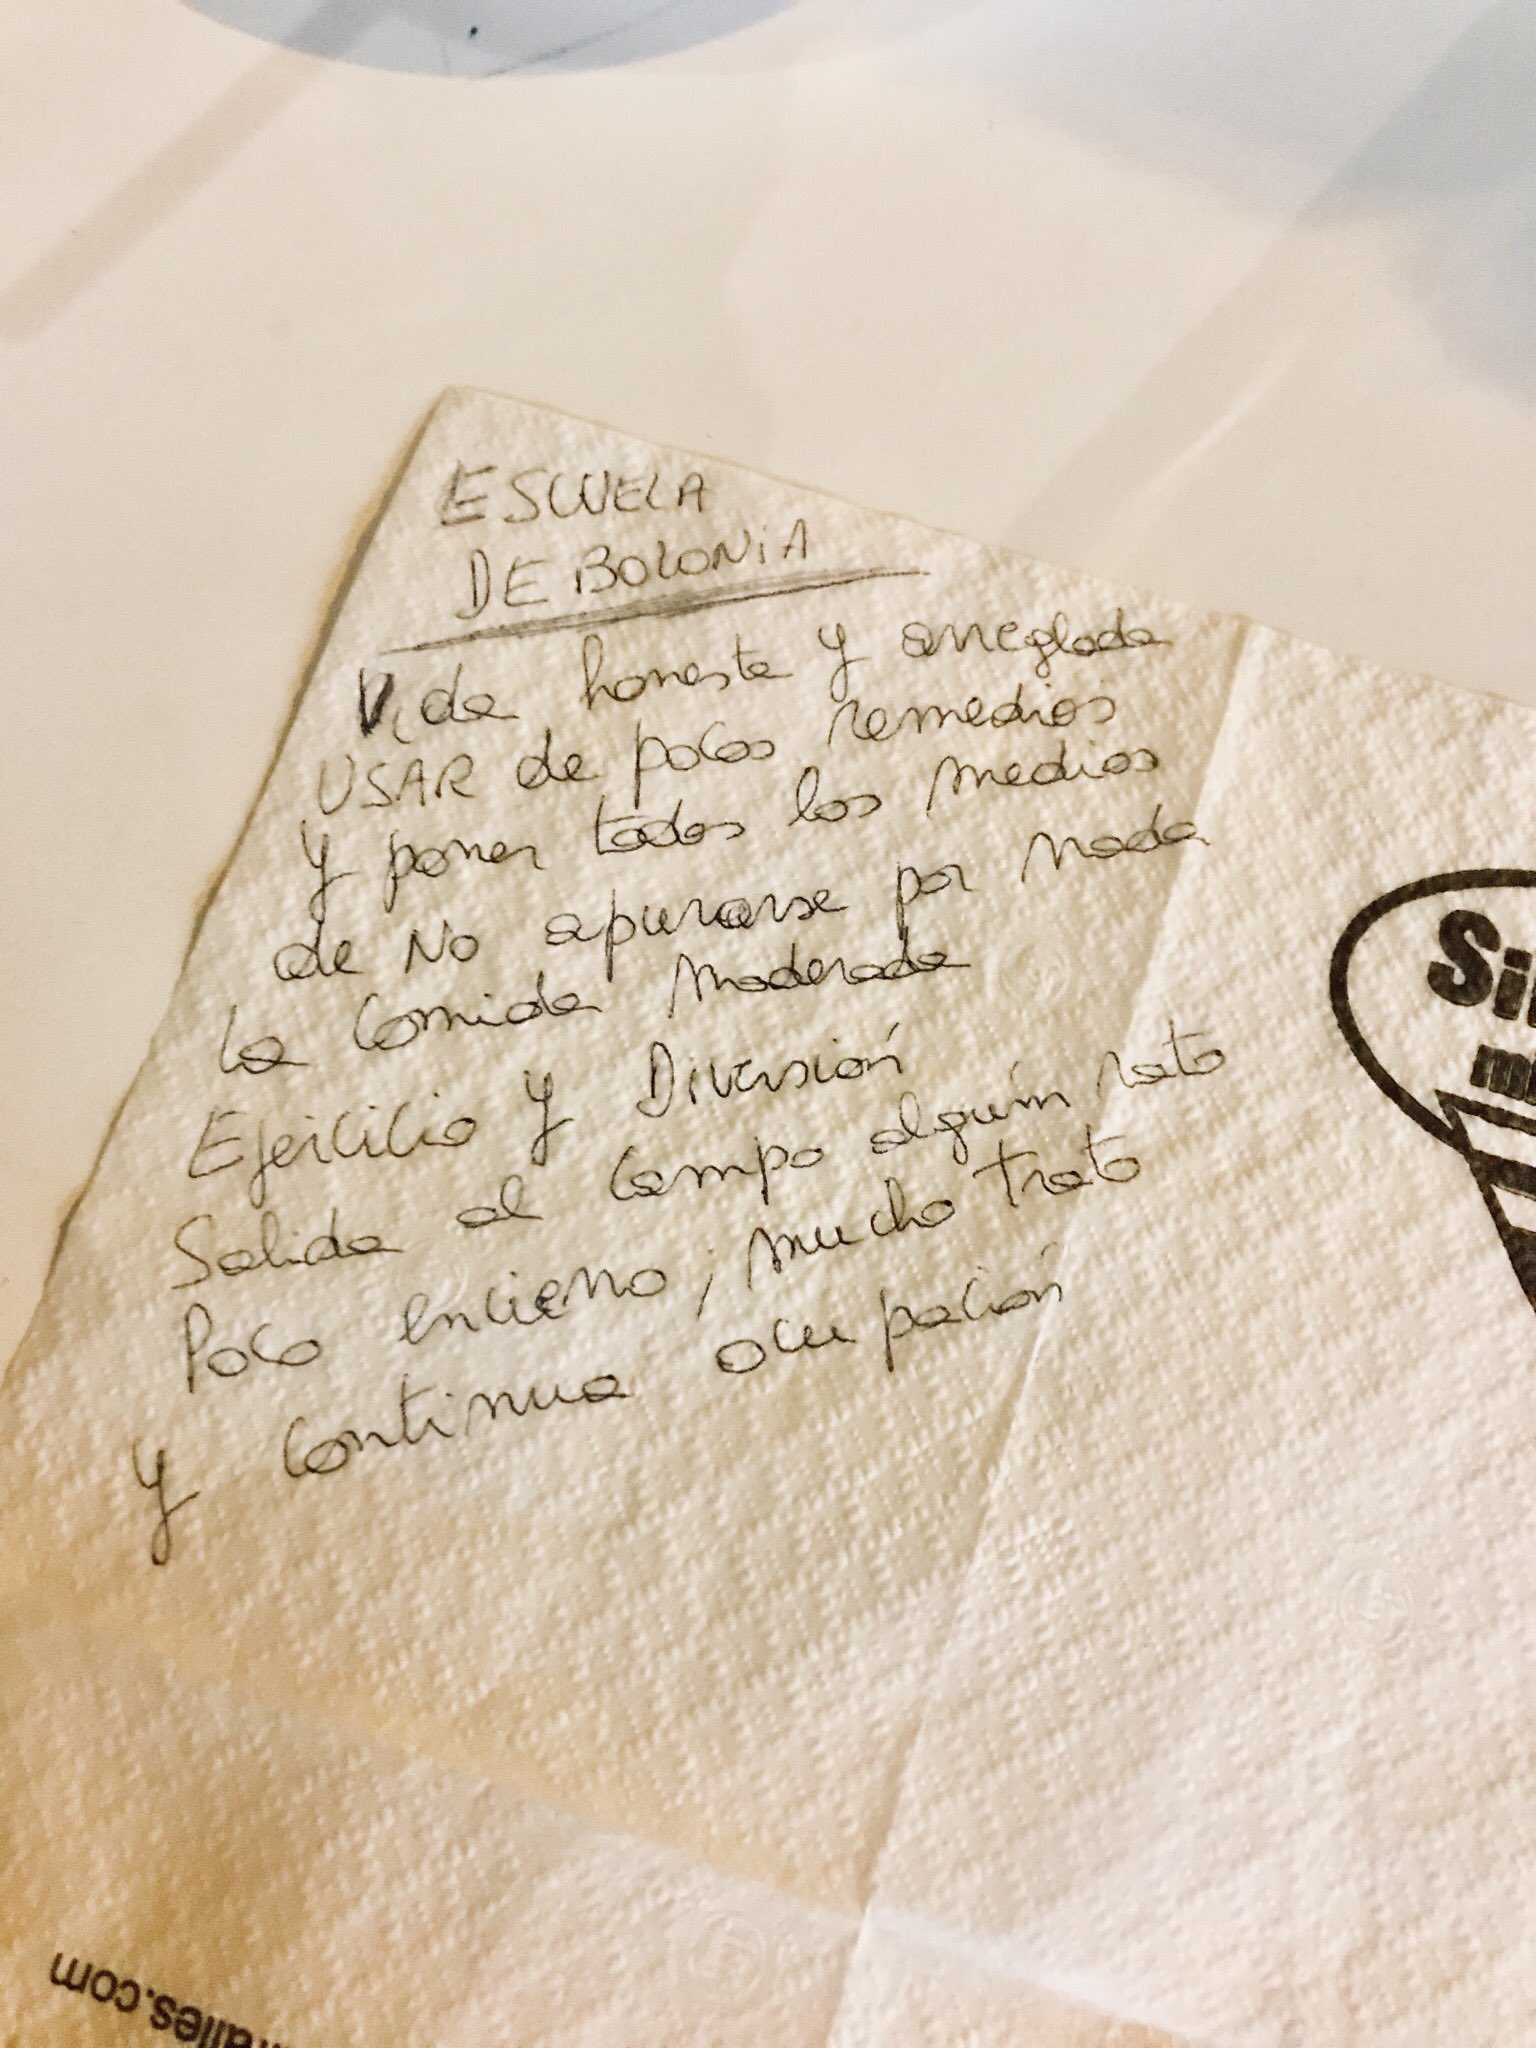 ESCUELA
DE BOLONiA
Vida honesta y arreglada
USAR de pocos remedios
y poner todos los medios
de NO apurarse por nada
La comida moderada
Ejercicio y Diversión
Salida al campo algún rato
Poco encierro, mucho trato
y continua ocupación